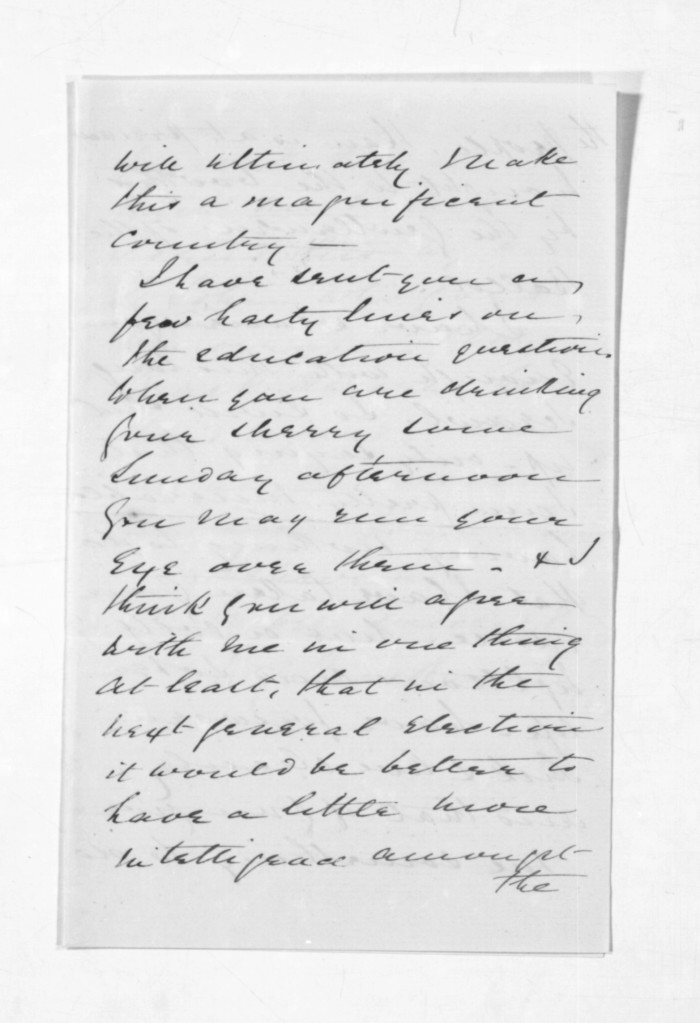 will ultimately make
this a magnificent
country —
I have sent you a
few hasty lines on
the education question.
When you are drinking
your sherry some
Sunday afternoon
you may run your
eye over them. & I
think you will agree
with me in one thing
at least, that in the
next general election
it would be better to
have a little more
intelligence amongst
the